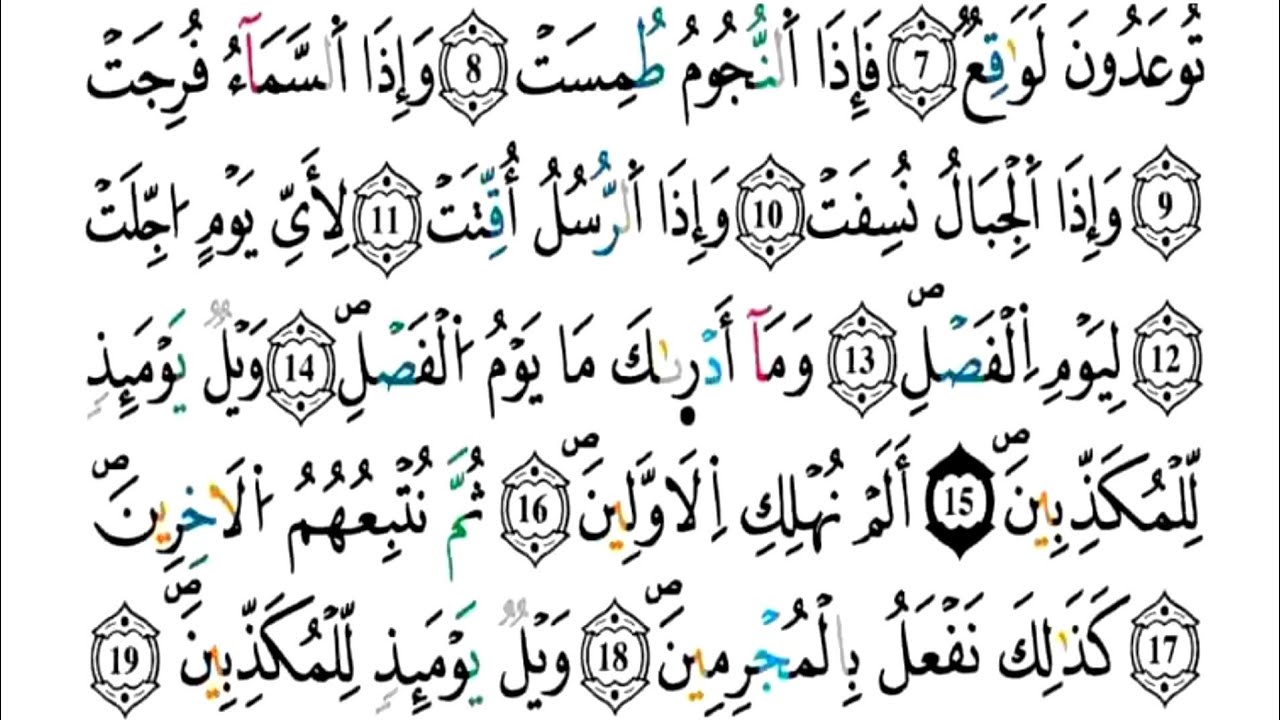 تُوعَدُونَ لَوَٰقِعٌ 7 فَإِذَا اَ۬لنُّجُومُ طُمِسَتْ 8 وَإِذَا اَ۬لسَّمَآءُ فُرِجَتْ
9 وَإِذَا اَ۬لْجِبَالُ نُسِفَتْ 10 وَإِذَا اَ۬لرُّسُلُ أُقِّتَتْ 11 لِأَيِّ يَوْمٍ ا۟جِّلَتْ
12 لِيَوْمِ اِ۬لْفَصْلِۖ 13 وَمَآ أَدْر۪ىٰكَ مَا يَوْمُ اُ۬لْفَصْلِۖ 14 وَيْلٌ يَوْمَئِذٍ
لِّلْمُكَذِّبِينَۖ 15 أَلَمْ نُهْلِكِ اِ۬لَاوَّلِينَۖ 16 ثُمَّ نُتْبِعُهُمُ اُ۬لَاخِرِينَۖ
17 كَذَٰلِكَ نَفْعَلُ بِالْمُجْرِمِينَۖ 18 وَيْلٌ يَوْمَئِذٍ لِّلْمُكَذِّبِينَۖ 19